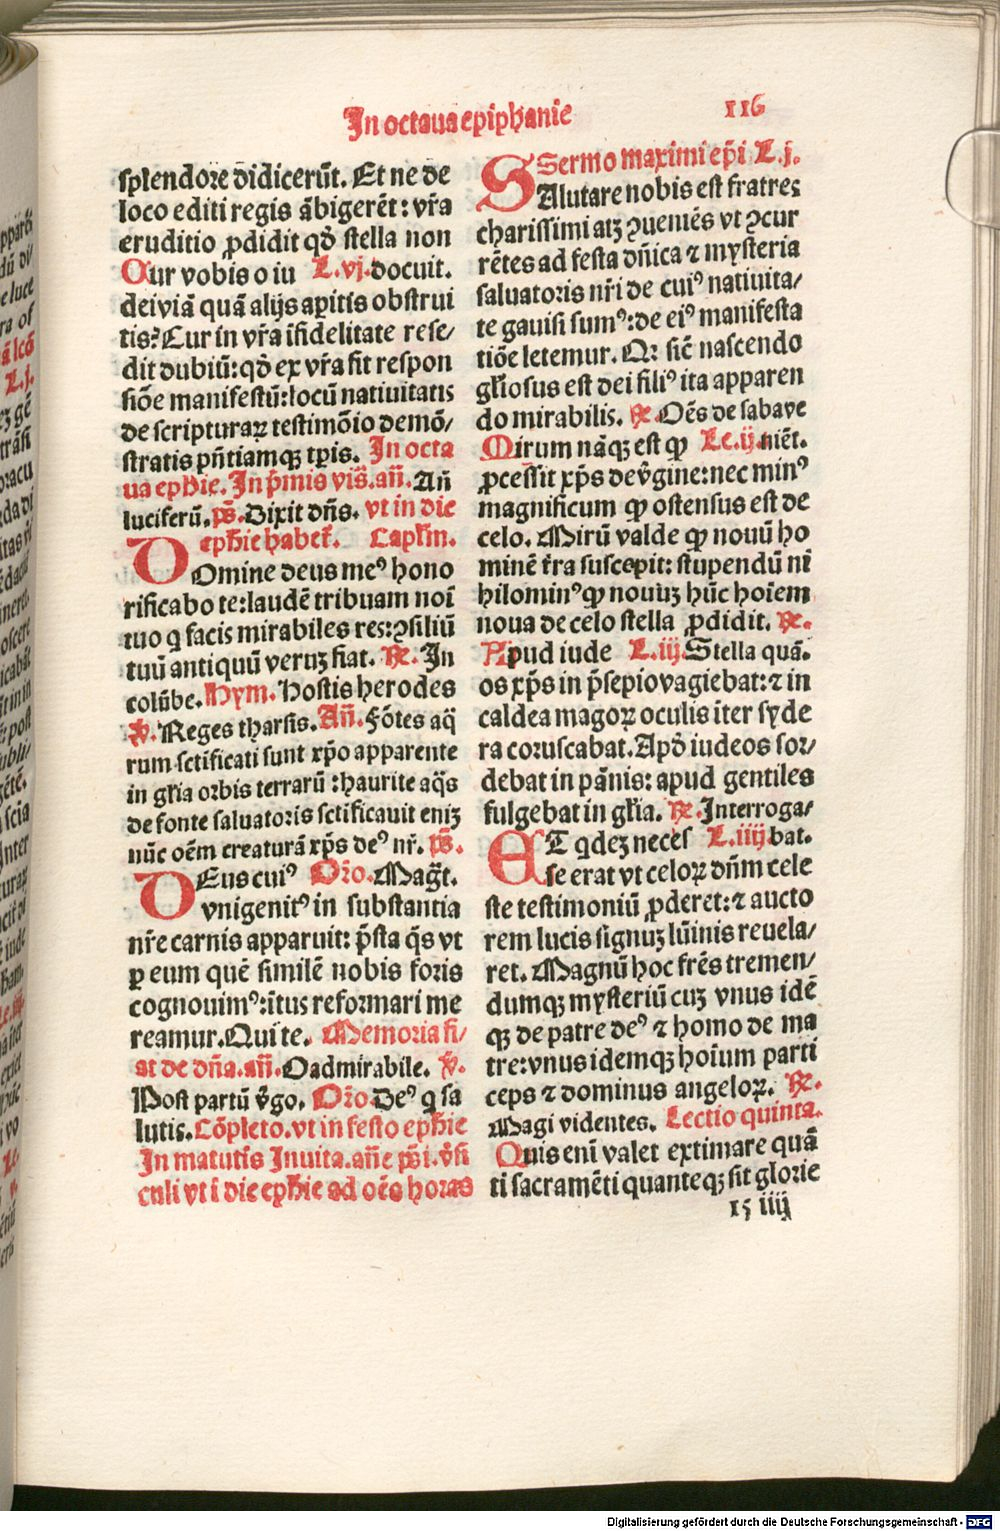 In octaua epiphanie
116
splendore didicerūt. Et ne de
loco editi regis ābigerēt: vr̄a
eruditio ꝓdidit qđ stella non
Cur vobis o iu L.vj. docuit.
dei viā quā alijs aꝑitis obstrui
tis? Cur in vr̄a īfidelitate rese/
dit dubiū: qđ ex vr̄a fit respon
siōe manifestū: locū natiuitatis
de scripturaꝝ testimōio demō/
stratis pn̄tiamqꝫ tꝑis. In octa
ua eph̄ie. In p̄mis vis̄. an̄. An̄
luciferū. ps̄. Dixit dn̄s. vt in die
eph̄ie habet̄. Caplm̄.
DOmine deus meꝰ hono
rificabo te: laudē tribuam noī
tuo q facis mirabiles res: ꝯsiliū
tuū antiquū veruꝫ fiat. ℟. In
colūbe. Hym. Hostis herodes
℣. Reges tharsis. An̄. Fōtes aq̄
rum sctificati sunt xp̄o apparente
in gl̄ia orbis terrarū: haurite aq̄s
de fonte saluatoris sctificauit eniꝫ
nūc oēm creaturā xp̄s deꝰ nr̄. ps̄.
DEus cuiꝰ Or̄o. Mag̅t.
vnigenitꝰ in substantia
nr̄e carnis apparuit: p̄sta q̄s vt
ꝑ eum quē similē nobis foris
cognouimꝰ: ītus reformari me
reamur. Qui te. Memoria fi/
at de dn̄a. an̄. O admirabile. ℣.
Post partū v̄go. Or̄o. Deꝰ q sa
lutis. Cōpleto. vt in festo eph̄ie
In matutis Inuita. an̄e ps̄i. v̄si
culi vt ī die eph̄ie ad oēs horas
Sermo maximi ep̄i L.j.
SAlutare nobis est fratres
charissimi atqꝫ ꝯueniēs vt ꝯcur
rētes ad festa dn̄ica ⁊ mysteria
saluatoris nr̄i de cuiꝰ natiuita/
te gauisi sumꝰ: de eiꝰ manifesta
tiōe letemur. Qꝛ sic̄ nascendo
gl̄iosus est dei filiꝰ ita apparen
do mirabilis. ℟. Oēs de saba ve
Mirum nāqꝫ est ꝙ Le.ij. niēt.
ꝓcessit xp̄s de v̄gine: nec minꝰ
magnificum ꝙ ostensus est de
celo. Mirū valde ꝙ nouū ho
minē tr̄a suscepit: stupendū ni
hilominꝰ ꝙ nouuꝫ hūc hoīem
noua de celo stella ꝓdidit. ℟.
Apud iude L.iij. Stella quā.
os xp̄s in p̄sepio vagiebat: ⁊ in
caldea magoꝝ oculis iter syde
ra coruscabat. Apđ iudeos sor/
debat in pānis: apud gentiles
fulgebat in gl̄ia. ℟. Interroga/
ET qdeꝫ neces L.iiij. bat.
se erat vt celoꝝ dn̄m cele
ste testimoniū ꝓderet: ⁊ aucto
rem lucis signuꝫ lūinis reuela/
ret. Magnū hoc fr̄es tremen/
dumqꝫ mysteriū cuꝫ vnus idē
qꝫ de patre deꝰ ⁊ homo de ma
tre: vnus idemqꝫ hoīum parti
ceps ⁊ dominus angeloꝝ. ℟.
Magi videntes. Lectio quinta.
Quis enī valet extimare quā
ti sacramēti quanteqꝫ sit glorie
15 iiij
Digitalisierung gefördert durch die Deutsche Forschungsgemeinschaft - DFG